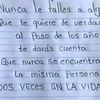 Nunca le falles a alg
que te quiere de verdad
al Paso de los años
te darás cuenta
Que nunca se encuentra
la misma persona
DOS VECES EN LA VIDA